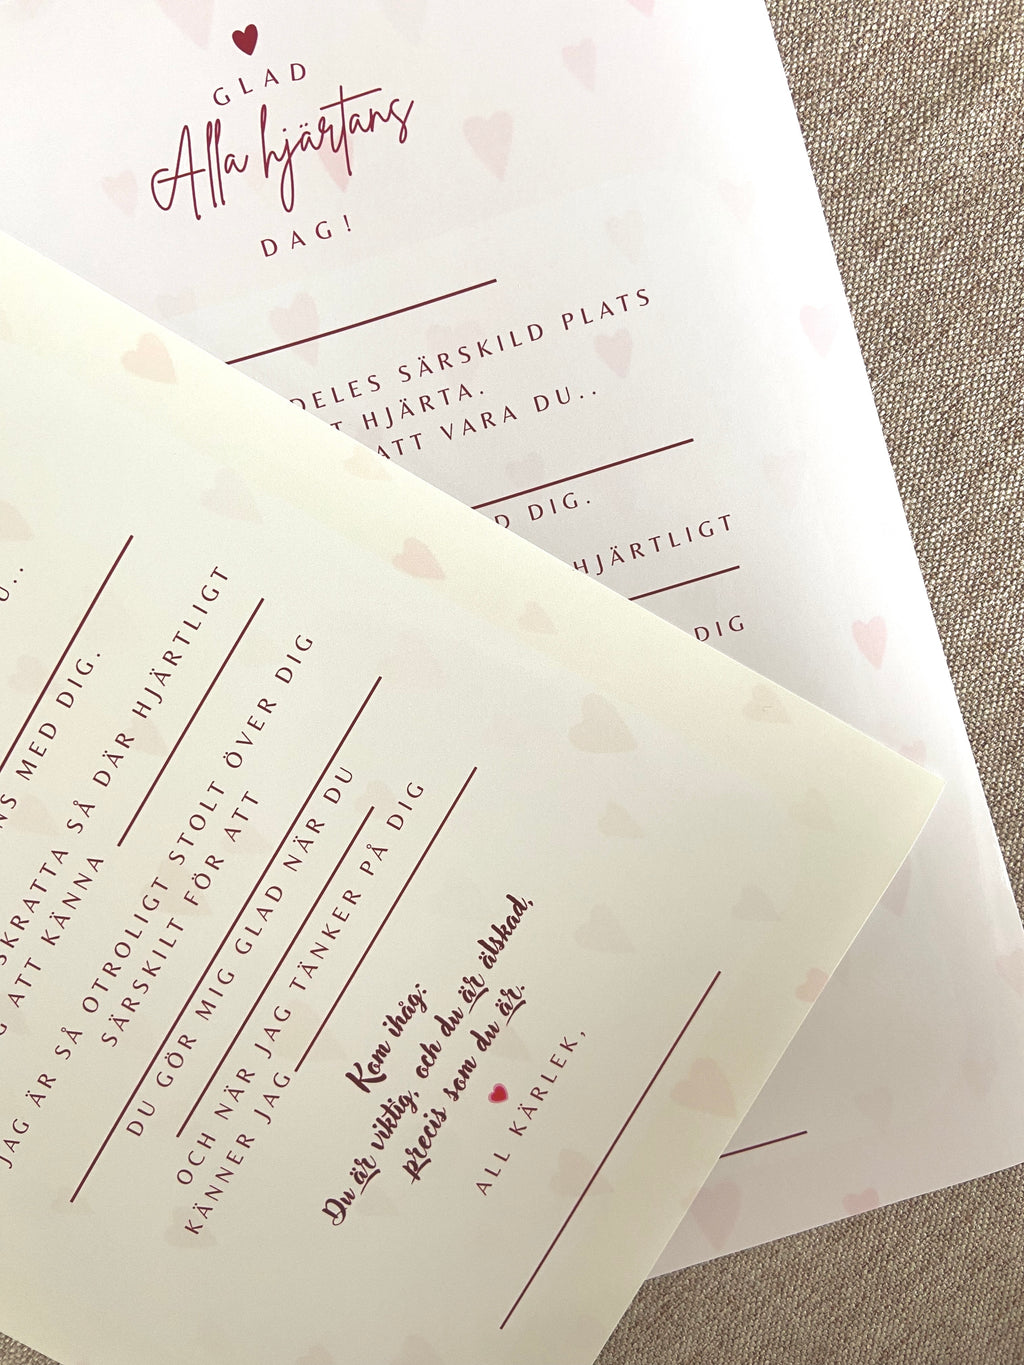 GLAD
Alla hjärtans
DAG!
SÄRSKILD PLATS
HJÄRTA.
ATT VARA DU..
DIG.
HJÄRTLIGT
DIG
MED DIG.
SKRATTA SÅ DÄR HJÄRTLIGT
ATT KÄNNA
JAG ÄR SÅ OTROLIGT STOLT ÖVER DIG
SÄRSKILT FÖR ATT
DU GÖR MIG GLAD NÄR DU
OCH NÄR JAG TÄNKER PÅ DIG
KÄNNER JAG
Kom ihåg:
Du är viktig, och du är älskad,
precis som du är.
ALL KÄRLEK,